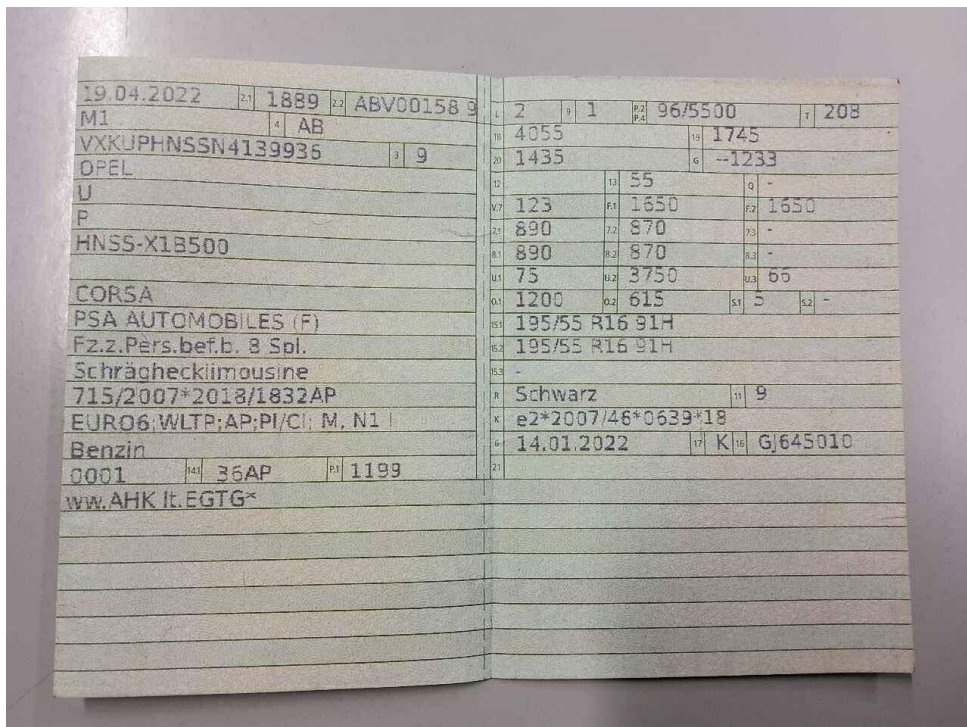 19.04.2022 2.1 1889 2.2 ABV00158 9
M1 4 AB
VXKUPHNSSN4139936 3 9
OPEL
U
P
HNSS-X1B500
CORSA
PSA AUTOMOBILES (F)
Fz.z.Pers.bef.b. 8 Spl.
Schräghecklimousine
715/2007*2018/1832AP
EURO6;WLTP;AP;PI/CI; M, N1 I
Benzin
0001 14.1 36AP P.1 1199
ww.AHK lt.EGTG*
L 2 9 1 P.2 P.4 96/5500 T 208
18 4055 19 1745
20 1435 G --1233
12 13 55 Q -
V.7 123 F.1 1650 F.2 1650
7.1 890 7.2 870 7.3 -
8.1 890 8.2 870 8.3 -
U.1 75 U.2 3750 U.3 66
O.1 1200 O.2 615 S.1 5 S.2 -
15.1 195/55 R16 91H
15.2 195/55 R16 91H
15.3 -
R Schwarz 11 9
K e2*2007/46*0639*18
6 14.01.2022 17 K 16 GJ645010
21